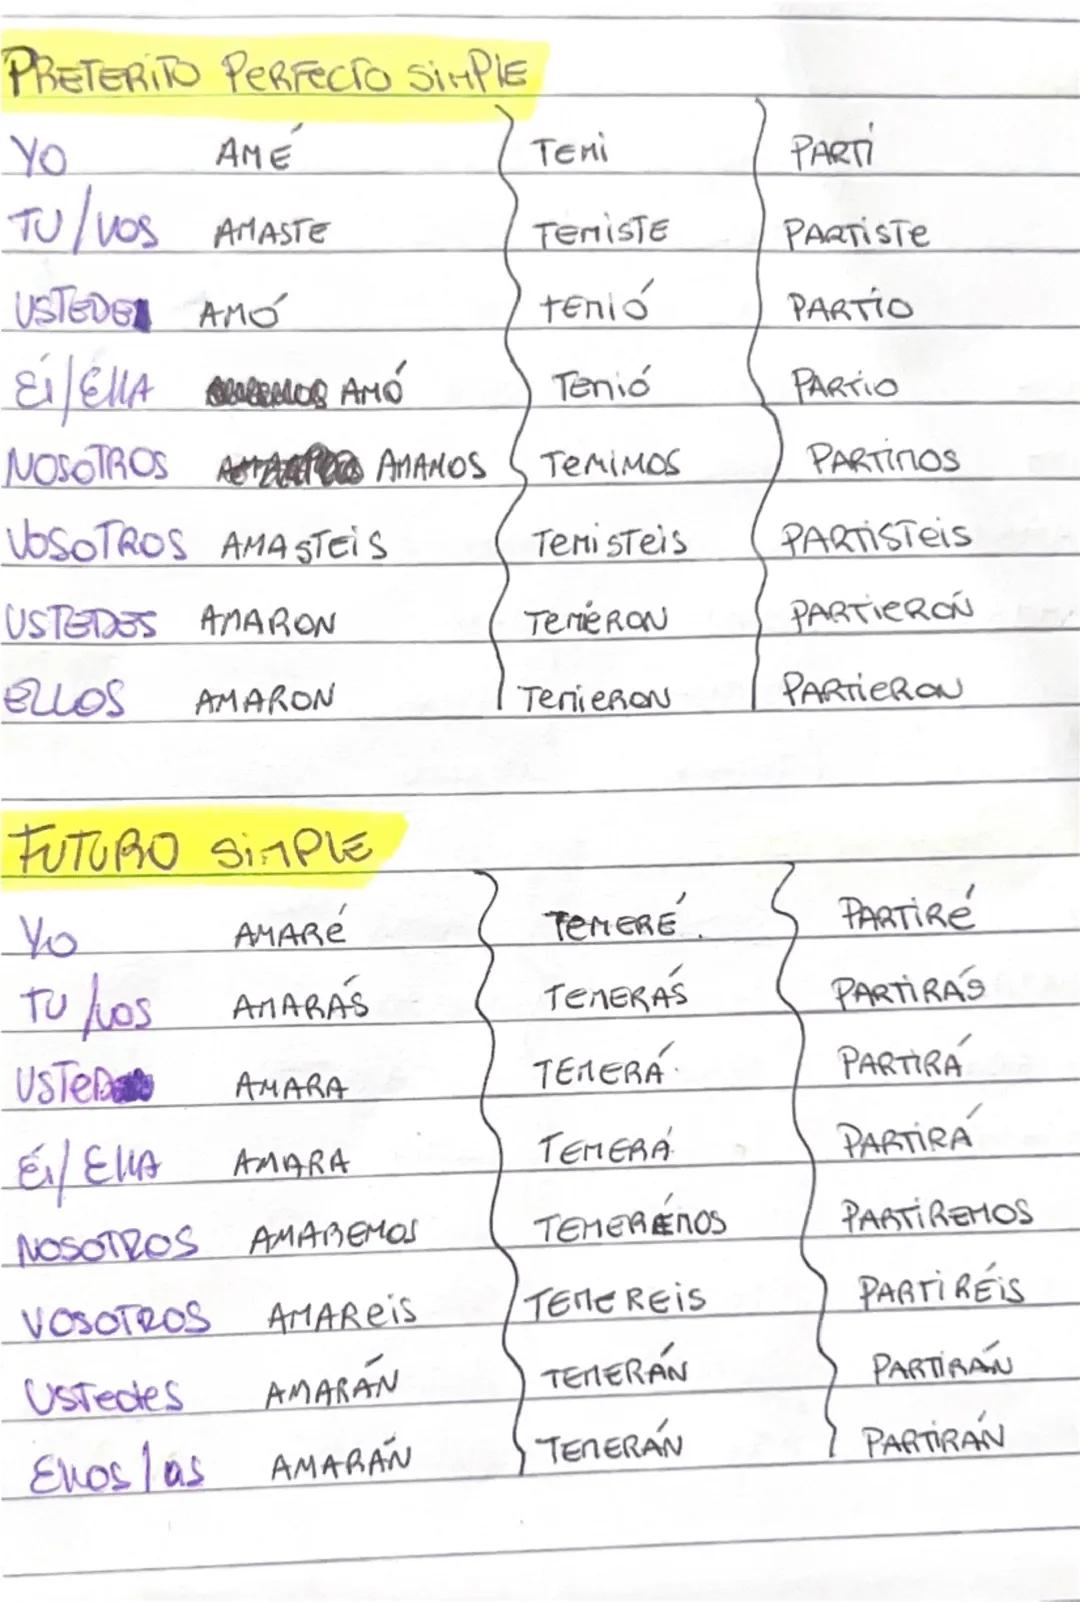 PRETERITO PERFECTO SIMPLE
YO AMÉ TEMI PARTÍ
TU/VOS AMASTE TEMISTE PARTISTE
USTEDE AMÓ TEMIÓ PARTÍO
Él/ÉllA AMÓ TEMIÓ PARTIO
NOSOTROS AMAMOS TEMIMOS PARTIMOS
VOSOTROS AMASTEIS TEMISTEIS PARTISTEIS
USTEDES AMARON TEMÉRON PARTIERON
ELLOS AMARON TEMIERON PARTIERON
FUTURO SIMPLE
YO AMARÉ TEMERÉ. PARTIRÉ
TU/VOS AMARÁS TEMERÁS PARTIRÁS
USTED AMARA TEMERÁ PARTIRÁ
Él/EllA AMARA TEMERÁ PARTIRÁ
NOSOTROS AMAREMOS TEMERÉMOS PARTIREMOS
VOSOTROS AMAREIS TEMEREIS PARTIRÉIS
USTedes AMARÁN TEMERÁN PARTIRÁN
Ellos/as AMARÁN TEMERÁN PARTIRÁN